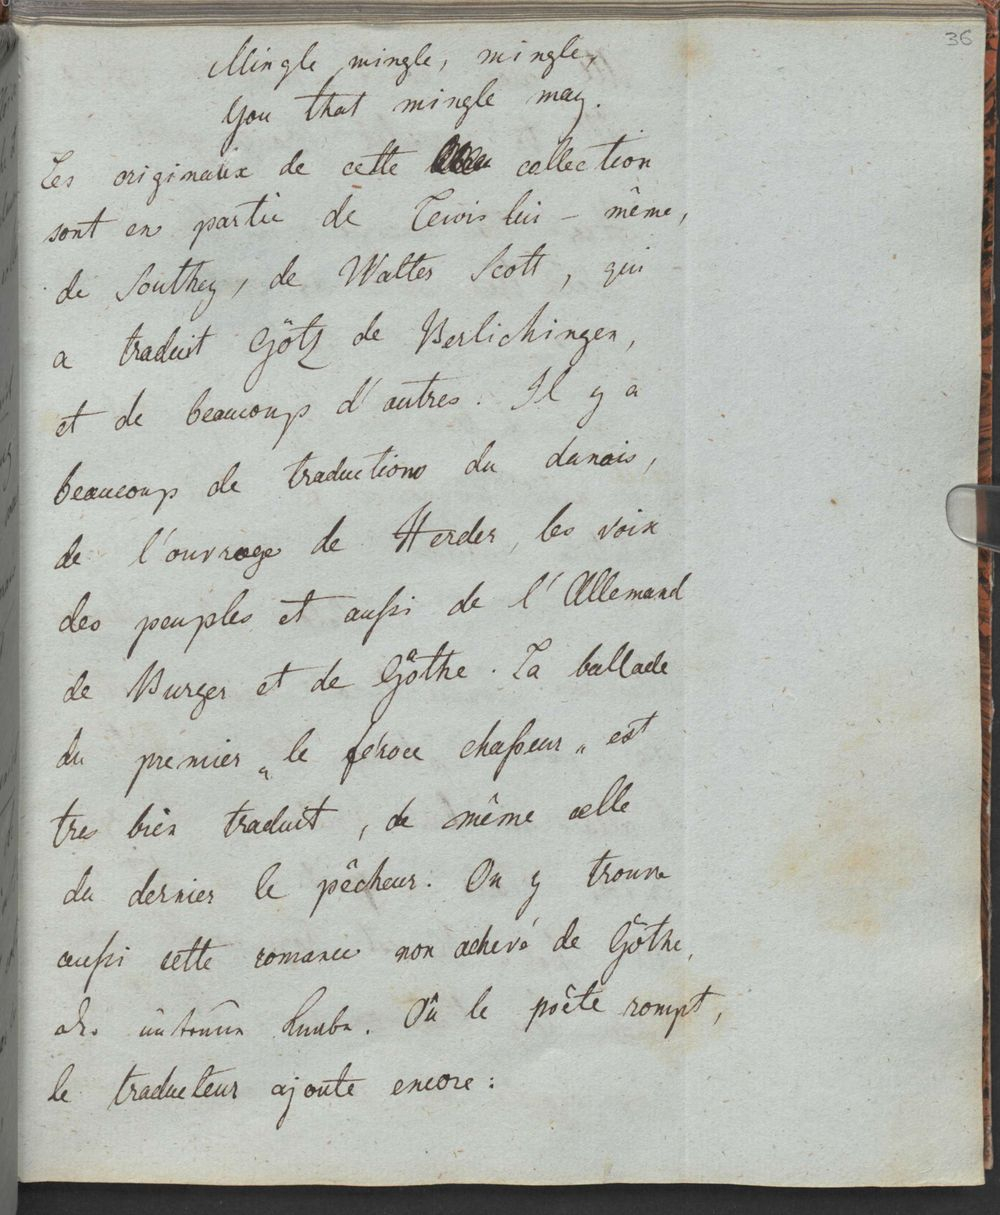 36
Mingle mingle, mingle,
You that mingle may.
Les originaux de cette collection
sont en partie de Lewis lui-même,
de Southey, de Walter Scott, qui
a traduit Götz de Berlichingen,
et de beaucoup d'autres. Il y a
beaucoup de traductions du danois,
de l'ouvrage de Herder, les voix
des peuples et aussi de l'Allemand
de Burger et de Göthe. La ballade
du premier „le féroce chasseur„ est
tres bien traduit, de même celle
du dernier le pêcheur. On y trouve
aussi cette romance non achevé de Göthe,
der untreue Knabe. Où le poête rompt,
le traducteur ajoute encore: